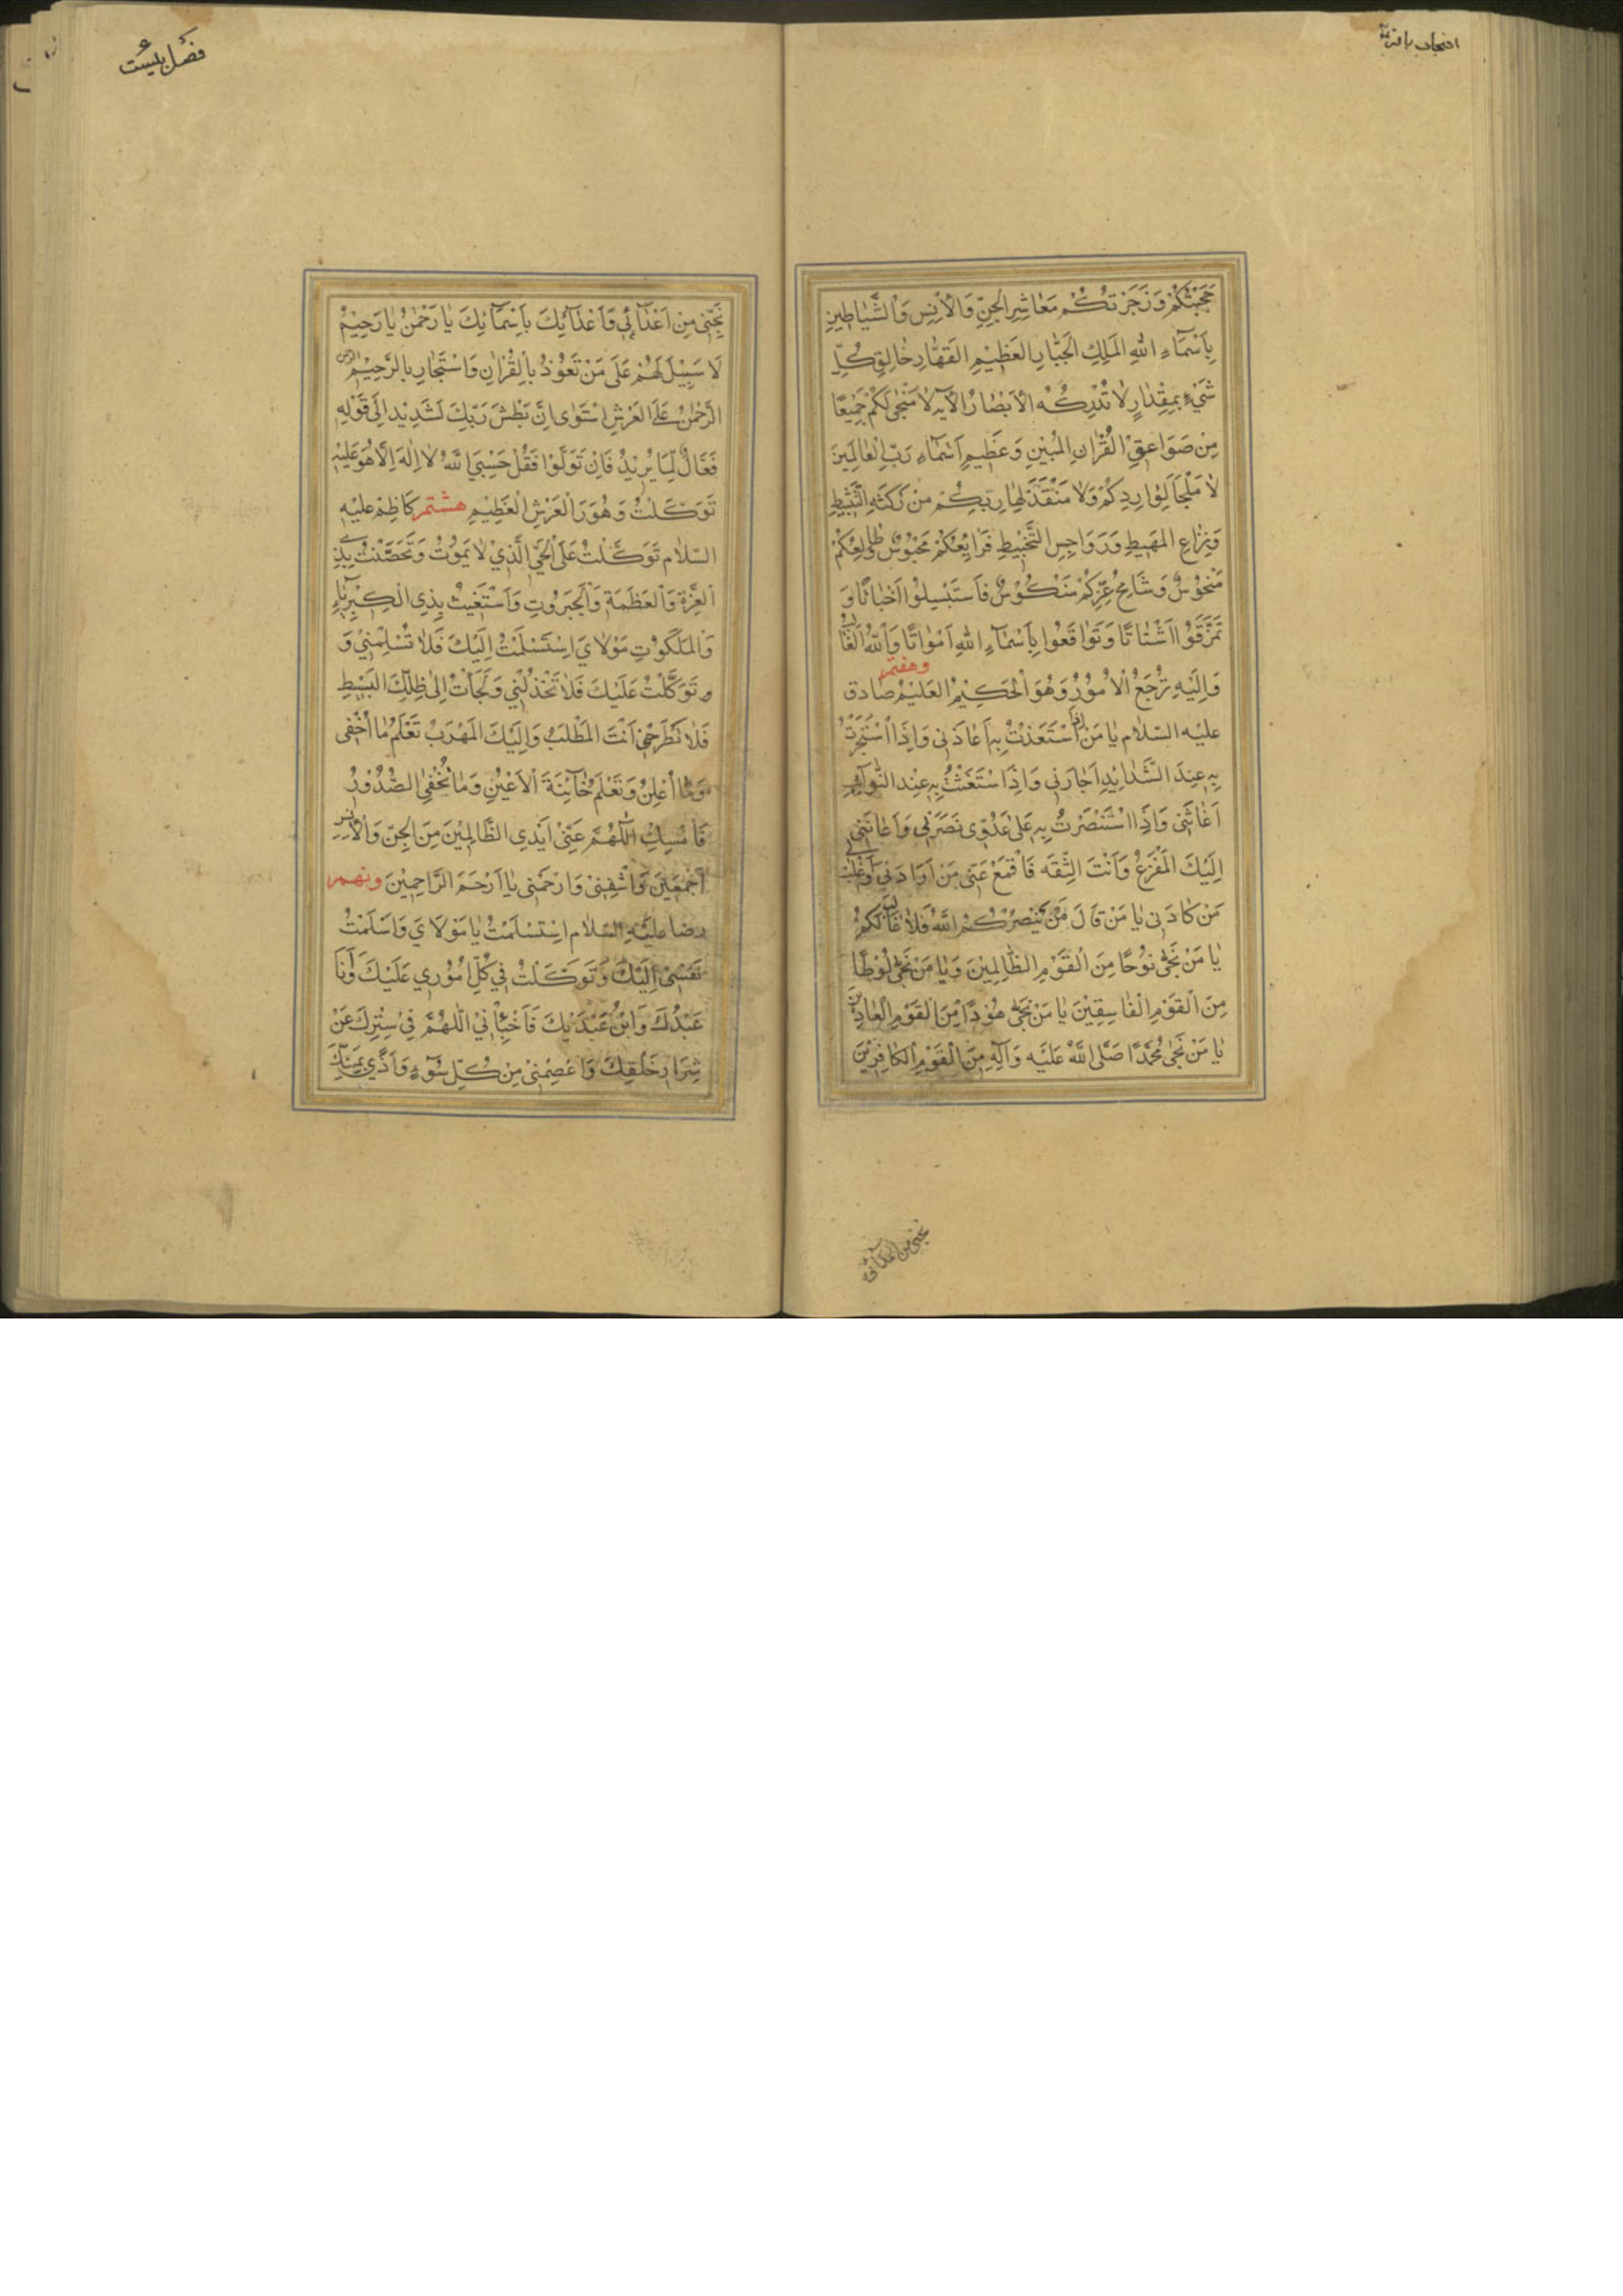 احتجاب باقر
حَجَبْتُكُمْ وَزَجَرْتُكُمْ مَعَاشِرَ الْجِنِّ وَالْأِنِسِ وَالشَّيَاطِينِ
بِاَسْمَاءِ اللهِ المَلِكِ الْجَبَّارِ العَظِيْمِ القَهَّارِ خَالِقِ كُلِّ
شَيْءٍ بِمِقْدَارٍ لَا تُدْرِكُهُ الْأَبْصَارُ الْآيَه لَا مَنْجٰى لَكُمْ جَمِيْعًا
مِنْ صَوَاعِقِ الْقُرْاٰنِ المُبْيِنِ وَعَظِيمِ اَسْمَاءِ رَبِّ الْعَالَمِينَ
لَا مَلْجَأَ لِوَارِدِكُمْ وَلَا مَنْقَذَ لِهَارِبِكُمْ مِنْ رَكَثَةِ التَّثْبِيطِ
وَنِزَاعِ المَهِيطِ وَرَوَاجِسِ التَّخْبِيطِ فَرَايِعُكُمْ مَحْبُوسٌ طَالِعُكُمْ
مَنْحُوْسٌ وَشَامِخُ عِزِّكُمْ مَنْكُوْسٌ فَاسْتَبْسِلُوْا اَخْبَاتًا وَ
تَمَزَّقَوُا اَشْتَاتًا وَتَوَاقَعُوا بِاَسْمَاءِ اللهِ اَمْوَاتًا وَاللهُ الْغَالِبُ
وَاِلَيْهِ تُرْجَعُ الْأُمُوْرُ وَهُوَ الْحَكِيْمُ العَلِيْمُ وهفتم صادق
عليه السلام يا مَنْ اِذَا اسْتَعَذْتُ بِهِ اَعَاذَنى وَاِذَا اسْتَجَرْتُ
بِهِ عِنِدَ الشَّدَايِدِ اَجَارَنِي وَاِذَا اسْتَغَثْتُ بِهِ عِنِد النَّوَآئِبِ
اَغَاثَنَى وَاِذَا اسْتَنْصَرْتُ بِهِ عَلٰى عَدُوّى نَصَرَنِي وَاَعَانَنِي
اِلَيْكَ الْمَفْزَعُ وَاَنْتَ الثِّقَه فَاقْمَعْ عَنِّى مَنْ اَرَادَنِي وَاغْلِبْ لِي
مَنْ كَادَنِى يَا مَنْ قَالَ اِنْ يَنْصُرْكُمُ اللَّهُ فَلَا غَالِبَ لَكُمْ
يَا مَنْ نَجّٰى نُوْحًا مِنَ الْقَوْمِ الظَّالِمِيْنَ وَيَا مَنْ نَجّٰى لُوْطًا
مِنَ الْقَوْمِ الْفَاسِقِيْنَ يَا مَنْ نَجّٰى هُوْدًا مِنَ القَوْمِ الْعَادِيْنَ
يَا مَنْ نَجّٰى مُحَمَّدًا صَلَّى اللَّهُ عَلَيْه وَآلِهِ مِنَ الْقَوْمِ الْكَافِرِيْنَ
نجنى من اعدائى
فصل بيست
نَجِّنِى مِنِ اَعْدَائِي وَاَعْدَآئِكَ بِاَسْمَآئِكَ يَا رَحْمٰنُ يَا رَحِيْمُ
لَا سَبِيْلَ لَهُمْ عَلَى مَنْ تَعَوَّذُ بِالْقُرْاٰنِ وَاسْتَجَارِ بِالرَّحِيْمِ الرحمن
الرَّحْمٰنُ عَلَى الْعَرْشِ اسْتَوٰى اِنَّ بَطْشَ رَبِّكَ لَشَدِيْد اِلَى قَوْلِهِ
فَعَّالٌ لِمَا يُرِيْدُ فَاِنْ تَوَلَّوْا فَقُلْ حَسْبِيَ اللَّهُ لَا اِلٰهَ اِلَّا هُوَ عَلَيْهِ
تَوَكَّلْتُ وَهُوَ رَبُّ الْعَرْشِ الْعَظِيْمِ هشتم كَاظِمْ عَلَيْهِ
السّلام تَوَكَّلْتُ عَلَى الْحَيِّ الَّذِيْ لَا يَمُوْتُ وَتَحَصَّنْتُ بِذِي
الْعِزَّةِ وَالْعَظَمَةِ وَالْجَبَرُوتِ وَاَسْتَغِيثُ بِذِى الْكِبْرِيَآءِ
وَالْمَلَكُوْتِ مَوْلَايَ اِسْتَسْلَمْتُ اِلَيْكَ فَلَا تُسْلِمْنِيْ وَ
وتَوَكَّلْتُ عَلَيْكَ فَلَا تَخْذُلْنِي وَلَجَأْتُ اِلٰى ظِلِّكَ البَسْيِطِ
فَلَا تَطْرَحْنِى اَنْتَ الْمَطْلَبُ وَاِلَيْكَ الْمَهْرَبُ تَعْلَمُ مَا اُخْفِى
وَمَا اُعْلِنُ وَتَعْلَمُ خَآئِنَةَ الْاَعْيُنِ وَمَا تُخْفِي الصُّدُوْرُ
فَاَمْسِكِ اللّٰهُمَّ عَنِّىْ اَيْدِى الظَّالِمِيْنَ مِنَ الْجِنِّ وَالْاِنْسِ
اَجْمَعَيْنَ وَاشْفِنِيْ وَارْحَمَنِى يَا اَرْحَمَ الرَّاحِمِيْنَ ونهم
رضا عليه السلام اِسْتَسْلَمْتُ يَا مَوْلَايَ وَاَسْلَمْتُ
نَفْسِى اِلَيْكَ وَتَوَكَّلْتُ فِي كُلِّ اُمُوْرِي عَلَيْكَ وَأَنَا
عَبْدُكَ وَابْنُ عَبْدَيْكَ فَاَخْبِأْنِيْ اللّٰهُمَّ فِىْ سِتْرِكَ عَنْ
شِرَارِ خَلْقِكَ وَاعْصِمْنِى مِنْ كُلِّ سُوْءٍ وَاَذًى بِمَنِّكَ